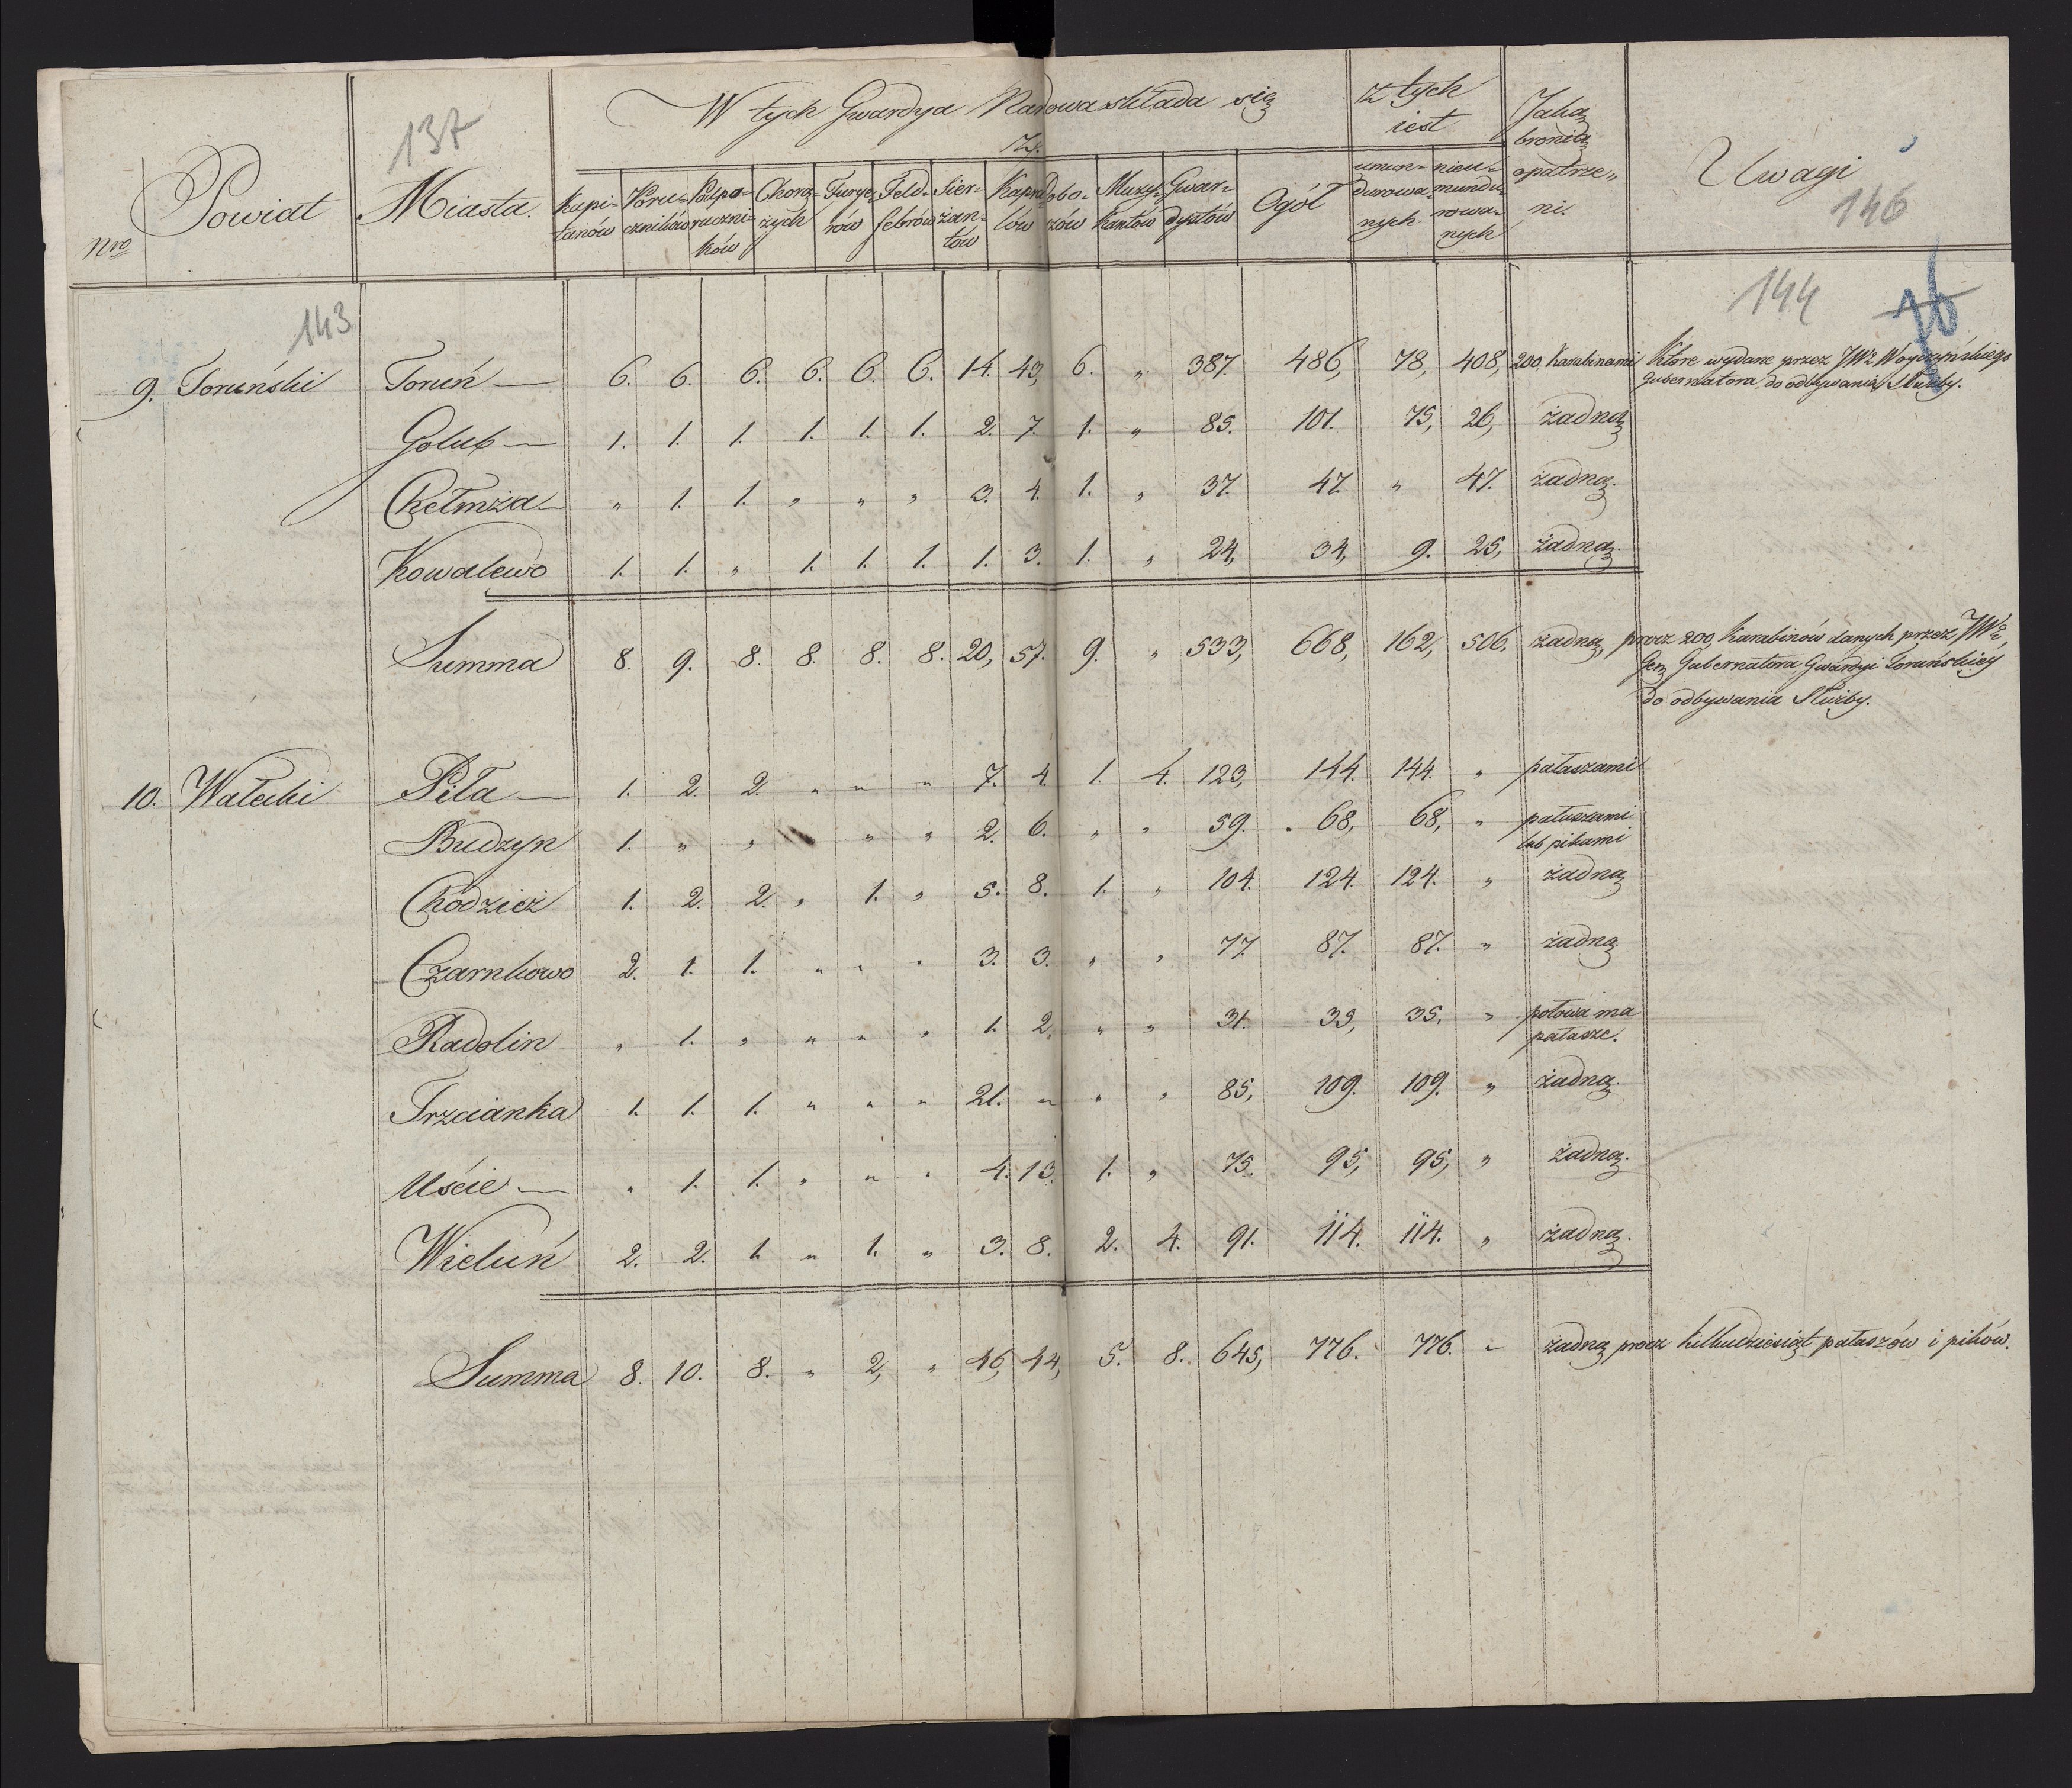 137
W tych Gwardya Nadowa składa się
Z.
Z tych
iest
Jaką
bronią
opatrze„
ni.
Uwagi
146
Nro
Powiat
Miasta.
Kapi=
tanów
Poru=
czników
Podpo=
ruczni=
ków
Chorą=
żych
Furye=
rów
Feld=
febrów
Sier=
żan=
tów
Kapra
lów
Dobo=
zów
Muzy=
kantów
Gwar=
dystów
Ogół
umun=
durowa=
nych
nieu=
mundu=
rowa=
nych
143
144
76
9. Toruński Toruń — 6. 6. 6. 6. 6. 6. 14. 43, 6. „ 387. 486, 78, 408, 200, Karabinami Które wydane przez JWo Woyczyńskiego
Gubernatora do odbywania Służby.
Golub — 1. 1. 1. 1. 1. 1. 2. 7. 1. „ 85. 101. 75, 26, żadną
Chełmża — „ 1. 1. „ „ „ 3. 4. 1. „ 37. 47. „ 47. żadną.
Kowalewo 1. 1. „ 1. 1. 1. 1. 3. 1. „ 24, 34, 9. 25, żadną.
Summa 8. 9. 8. 8. 8. 8. 20, 57. 9. „ 533, 668, 162, 506. żadną, procz 200, Karabinów danych przez JWo,
Gubernatora Gwardyi Toruńskiey
do odbywania Służby.
10. Wałecki Piła — 1. 2. 2. „ „ „ 7. 4. 1. 4. 123, 144. 144. „ pałaszami
Budzyn 1. „ „ „ „ 2. 6. „ „ 59. 68, 68, „ pałuszami
lub pikami
Chodzież 1. 2. 2. „ 1. „ 5. 8. 1. „ 104. 124. 124. „ żadną
Czarnkowo 2. 1. 1. „ „ „ 3. 3. „ „ 77. 87. 87. „ żadną
Radolin „ 1. „ „ „ „ 1. 2. „ „ 31. 35, 35. „ połowa ma
pałasze.
Trzcianka 1. 1. 1. „ „ „ 21. „ „ „ 85, 109. 109. „ żadną.
Uście — „ 1. 1. „ „ „ 4. 13. 1. „ 75. 95, 95, „ żadną.
Wieluń 2. 2. 1. „ 1. „ 3. 8. 2. 4. 91. 114. 114. „ żadną.
Summa 8. 10. 8. „ 2, „ 46, 44, 5. 8. 645, 776. 776. „ żadną procz kilkudziesiąt pałaszów i pików.